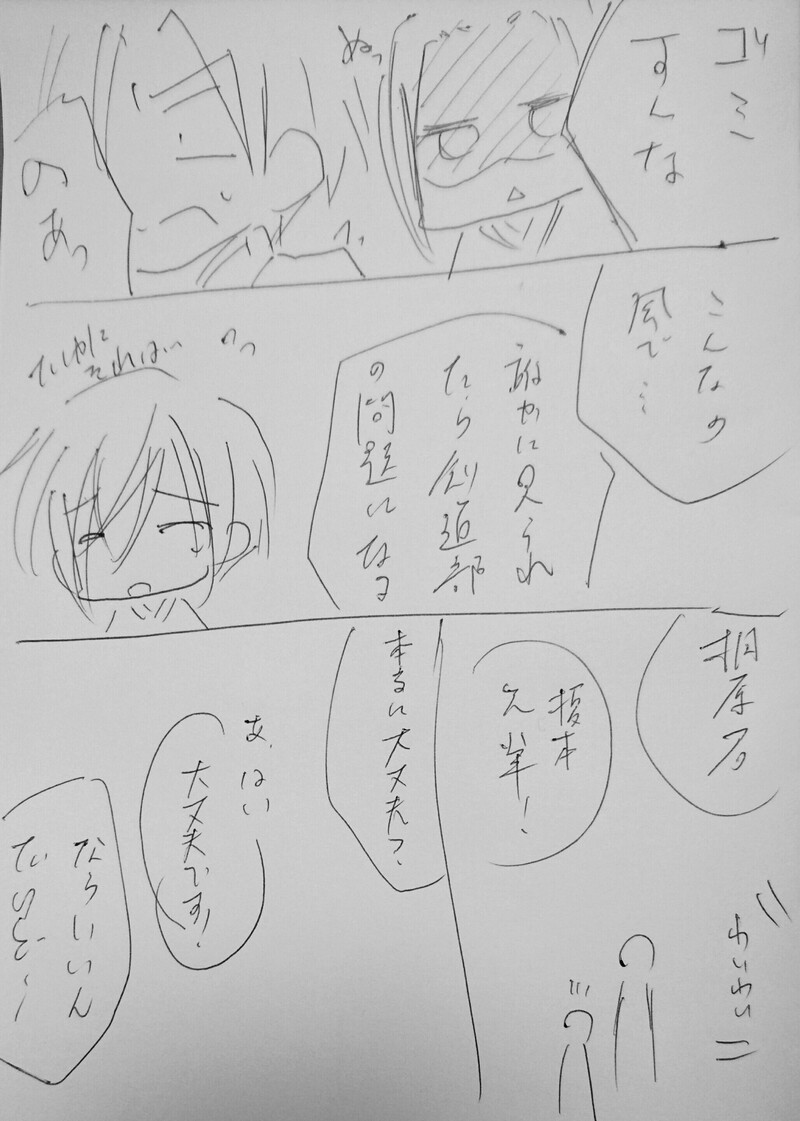 ゴミ
すんな
ぬっ
のあっ
こんなの
風で…
誰かに見られ
たら剣道部
の問題になる
たしかに
それはい
桐原君
榎本
先輩!
わいわい
本当に大丈夫?
あ、はい
大丈夫です!
ならいいん
だけど…